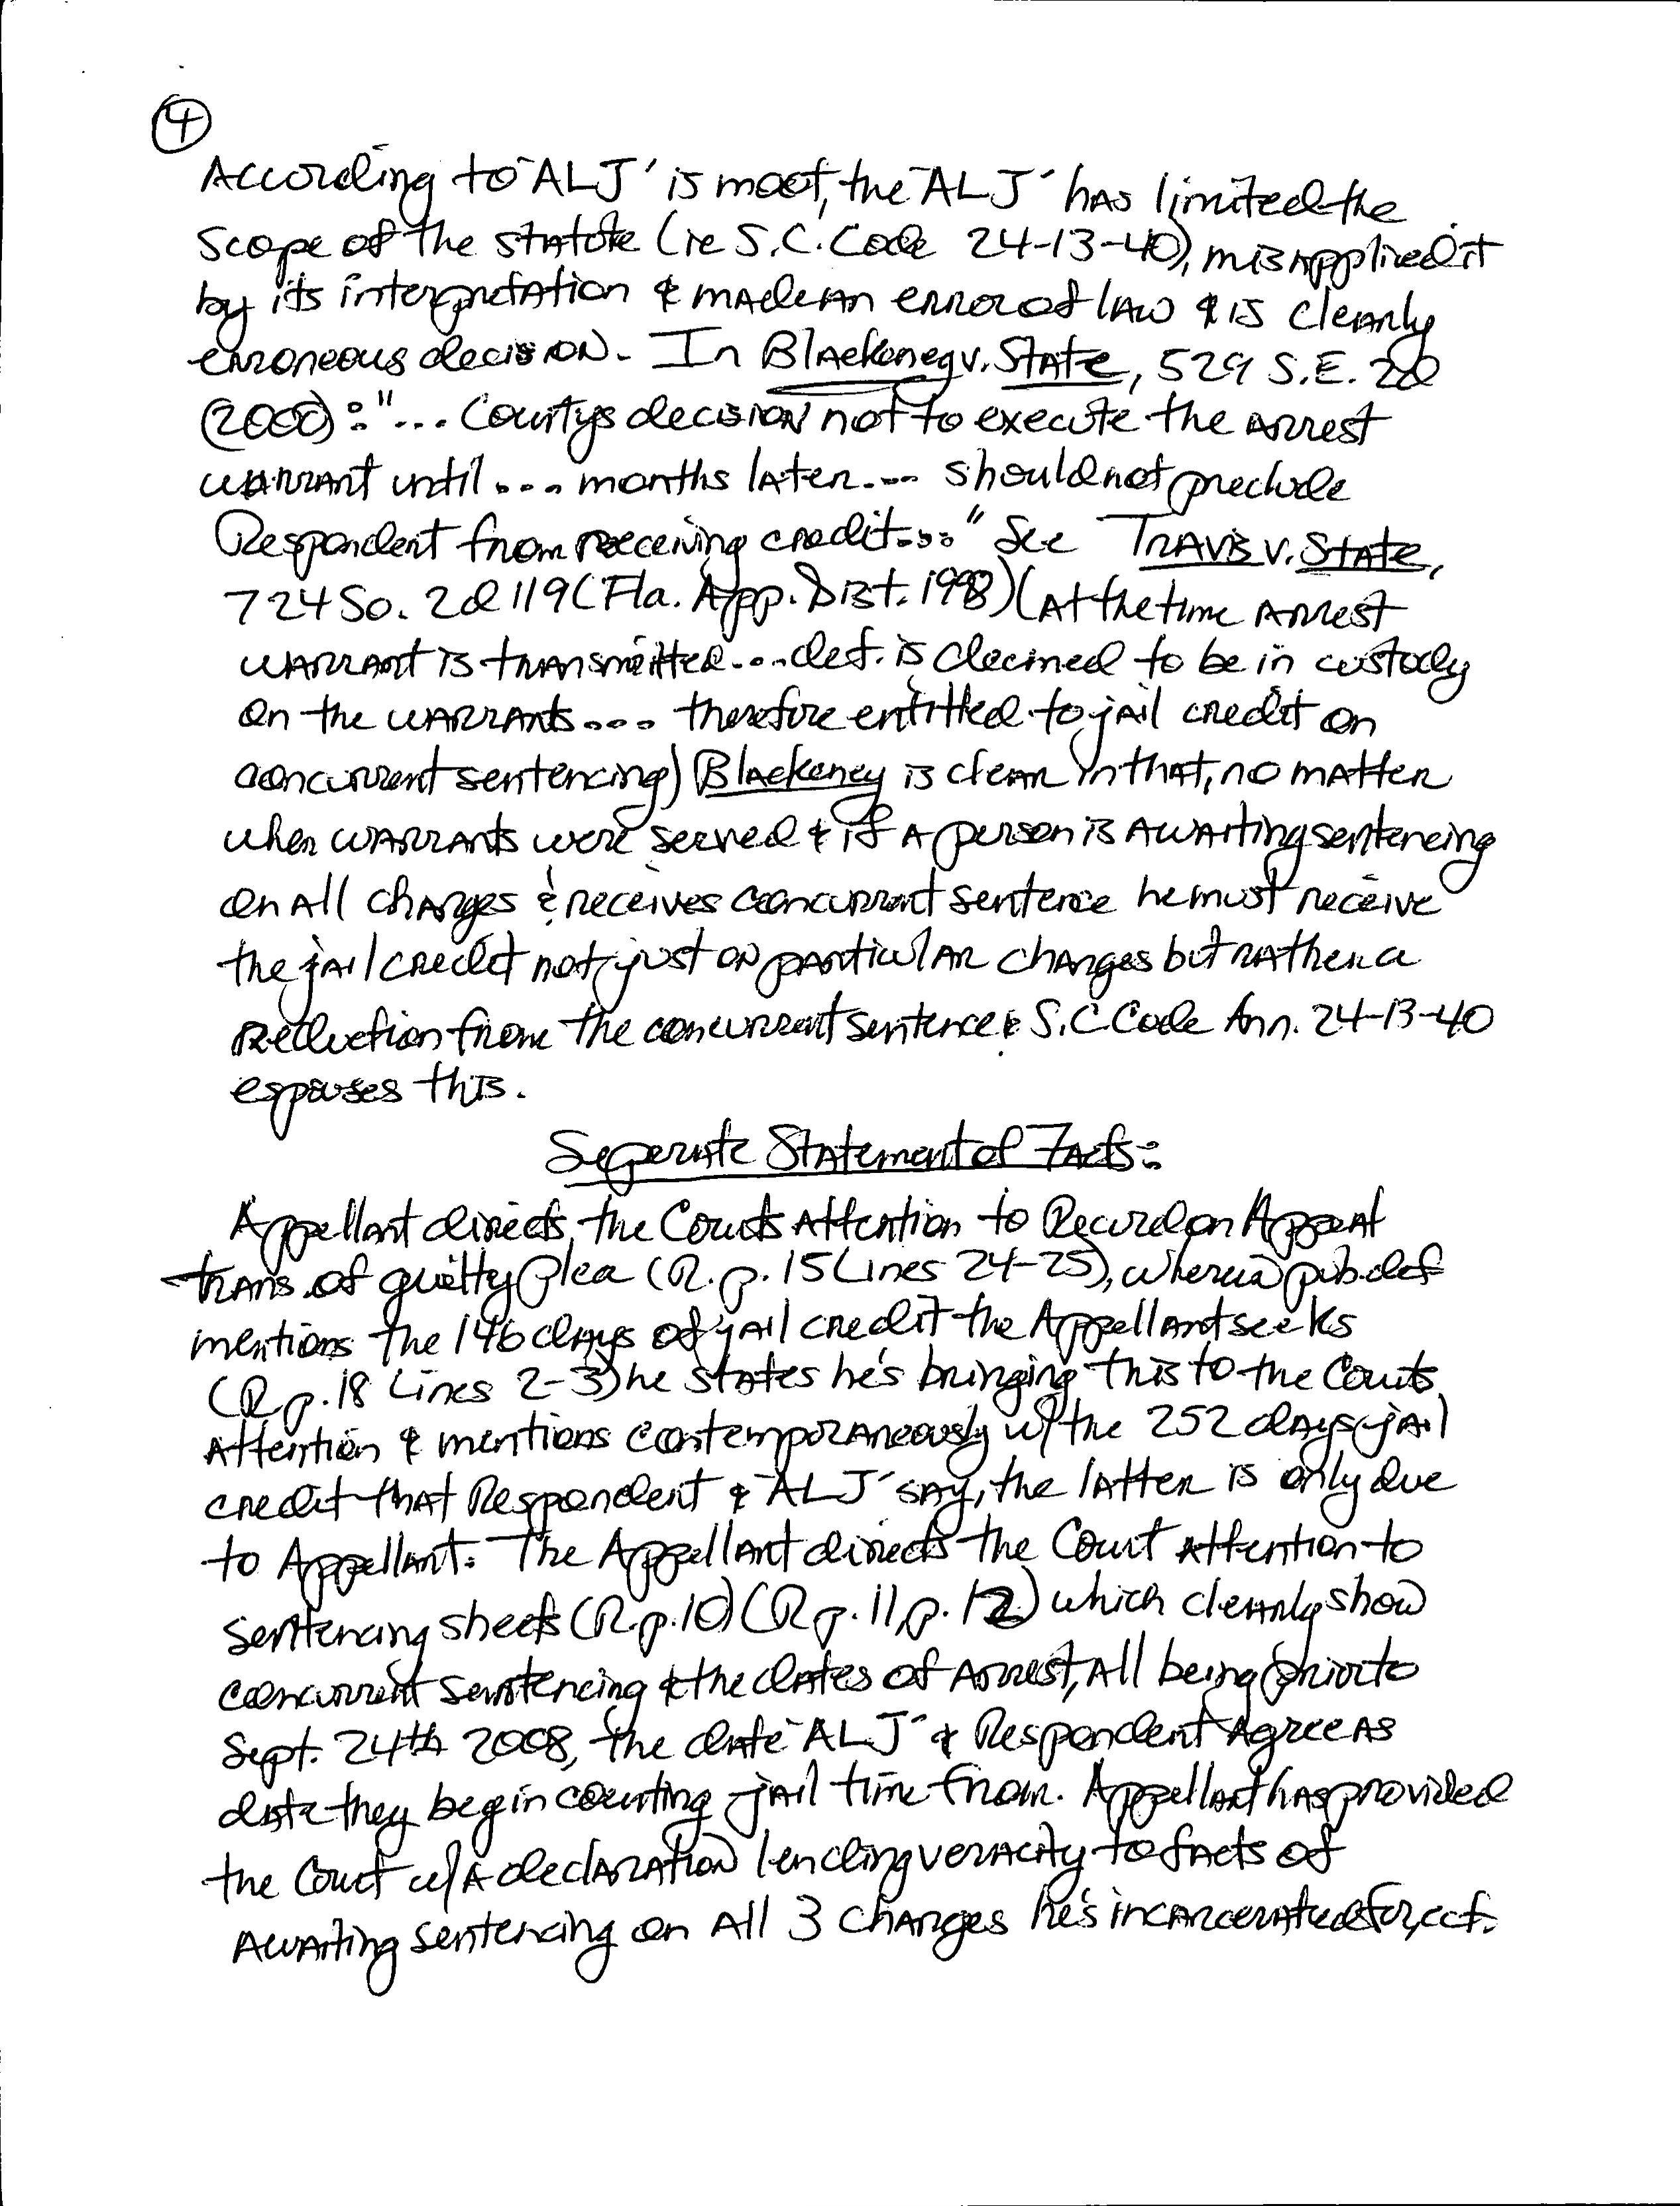 4
According to "ALJ" is moot, the "ALJ" has limited the
scope of the statute (ie S.C. Code 24-13-40), misapplied it
by its interpretation & made an error of law & is clearly
erroneous decision. In Blackeney v. State, 529 S.E. 2d
(2000): "... Countys decision not to execute the arrest
warrant until ... months later ... should not preclude
Respondent from receiving credit..." See Travis v. State,
724 So. 2d 119 (Fla. App. Dist. 1998) (at the time arrest
warrant is transmitted ... def. is deemed to be in custody
on the warrants .... therefore entitled to jail credit on
concurrent sentencing) Blackeney is clear in that, no matter
when warrants were served & if a person is awaiting sentencing
on all charges & receives concurrent sentence he must receive
the jail credit not just on particular charges but rather a
reduction from the concurrent sentence & S.C. Code Ann. 24-13-40
espouses this.
Seperate Statement of Facts:
Appellant directs the Courts attention to Record on Appeal
trans. of guilty plea (R. p. 15 Lines 24-25), wherein pub. def
mentions the 146 days of jail credit the Appellant seeks
(R p. 18 Lines 2-3) he states he's bringing this to the Courts
attention & mentions contemporaneously w/ the 252 days jail
credit that Respondent & "ALJ" say, the latter is only due
to Appellant. The Appellant directs the Court attention to
sentencing sheets (R. p. 10) (R p. 11, p. 12) which clearly show
concurrent sentencing & the dates of arrest, all being prior to
Sept. 24th 2008, the date "ALJ" & Respondent agree as
date they begin counting jail time from. Appellant has provided
the Court w/ a declaration lending veracity to facts of
awaiting sentencing on all 3 charges he's incarcerated for, ect.